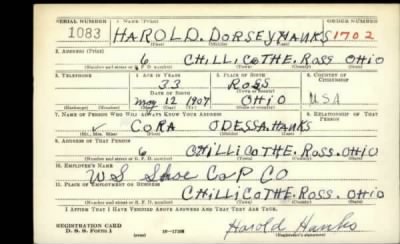 SERIAL NUMBER 1. NAME (Print) ORDER NUMBER
1083 HAROLD. DORSEY HANKS 1702
(First) (Middle) (Last)
2. ADDRESS (Print)
6 CHILLICOTHE. ROSS OHIO
(Number and street or R. F. D. number) (Town) (County) (State)
3. TELEPHONE 4. AGE IN YEARS 5. PLACE OF BIRTH 6. COUNTRY OF CITIZENSHIP
33 ROSS
DATE OF BIRTH (Town or county)
May 12 1907 OHIO USA
(Exchange) (Number) (Mo.) (Day) (Yr.) (State or country)
7. NAME OF PERSON WHO WILL ALWAYS KNOW YOUR ADDRESS 8. RELATIONSHIP OF THAT PERSON
CORA ODESSA. HANKS
(Mr., Mrs., Miss) (First) (Middle) (Last)
9. ADDRESS OF THAT PERSON
6 CHILLICOTHE. ROSS. OHIO
(Number and street or R. F. D. number) (Town) (County) (State)
10. EMPLOYER'S NAME
US Shoe CoRP CO
11. PLACE OF EMPLOYMENT OR BUSINESS
CHILLICOTHE. ROSS. OHIO
(Number and street or R. F. D. number) (Town) (County) (State)
I AFFIRM THAT I HAVE VERIFIED ABOVE ANSWERS AND THAT THEY ARE TRUE.
REGISTRATION CARD
D. S. S. FORM 1 16—17105 Harold Hanks
(Registrant's signature)